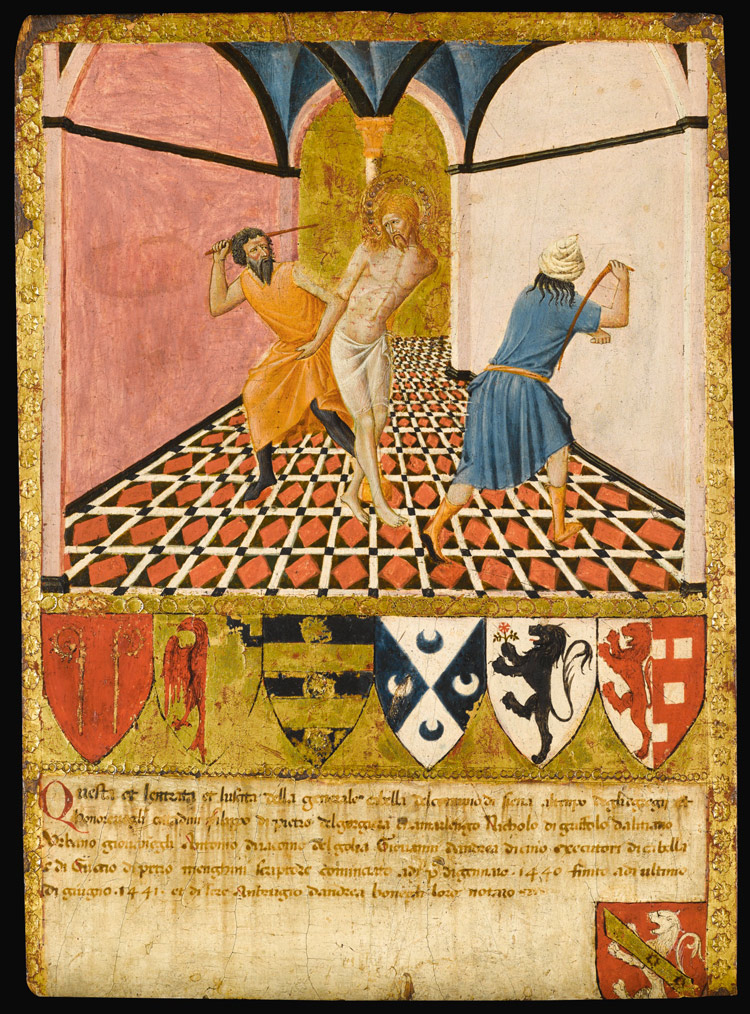 Questa e lentrata et luscita della generale cabella del comuno di siena al tempo degli egregi et
honorevogli citadini filippo di pietro del camarlengo Nicholo di
Urbano giovanegli Antonio di iacomo del golia Giovanni dandrea di executori di cabella
e di Guccio di pietro menghini scriptore cominciate adi p° di gennaio .1440. finite adi ultimo
di giugno .1441. et di sere Anbruogio dandrea bonegti loro notaio